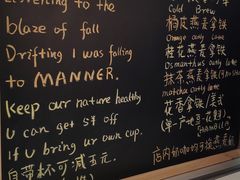 Listening to the
blaze of fall
Drifting I was falling
to MANNER.
keep our nature healthy
u can get 5¥ off
if u bring ur own cup.
自带杯可减五元.
Cold Brew
橘皮燕麦拿铁
Orange oaty latte
桂花燕麦拿铁
Osmanthus oaty latte
抹茶燕麦拿铁
matcha oaty latte
花香拿铁(美式)
店内奶咖均可换燕麦奶